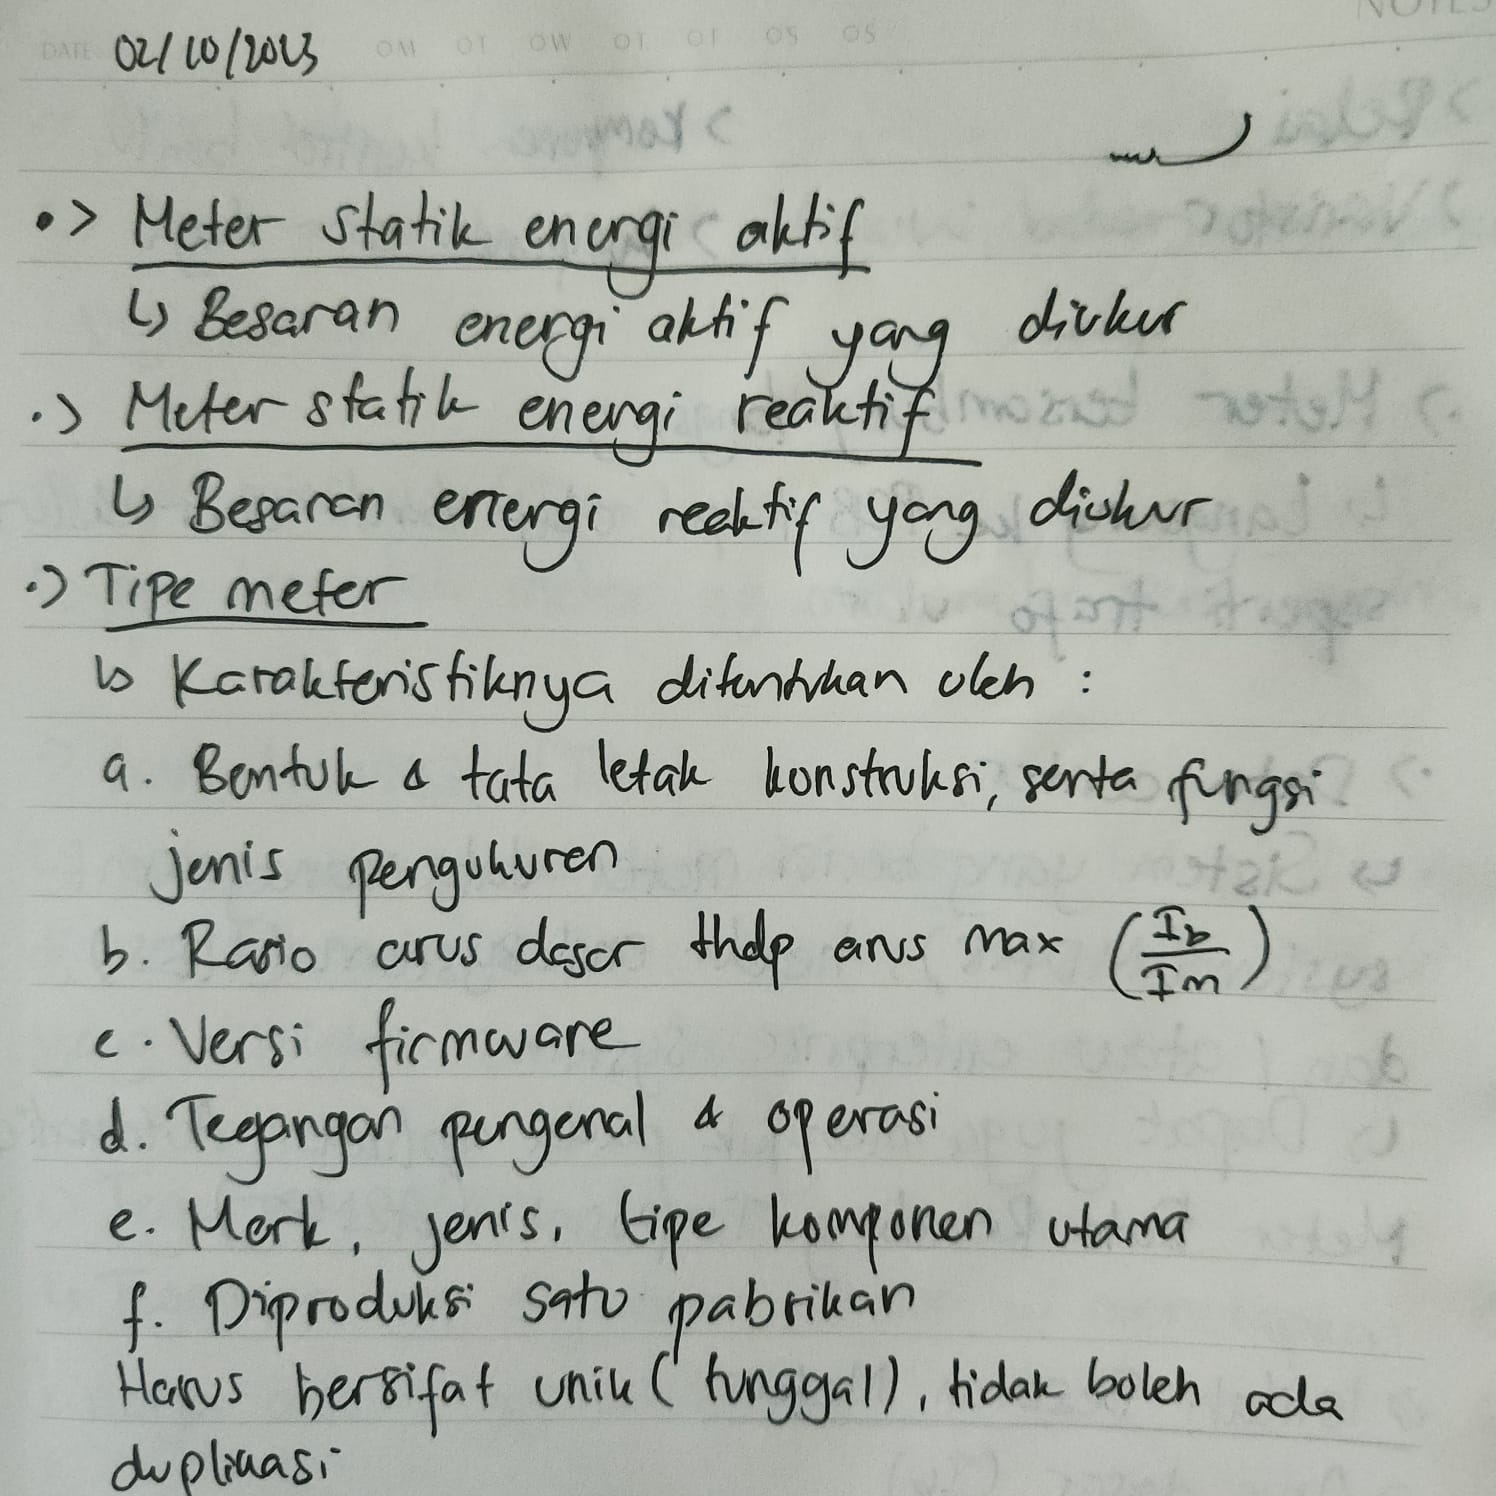 NOTES
DATE 02/10/2023
•> Meter statik energi aktif
↳ Besaran energi aktif yang diukur
•> Meter statik energi reaktif
↳ Besaran energi reaktif yang diukur
•> Tipe meter
↳ Karakteristiknya ditentukan oleh :
a. Bentuk & tata letak konstruksi, serta fungsi
jenis pengukuran
b. Rasio arus dasar thdp arus max (Ib/Im)
c. Versi firmware
d. Tegangan pengenal & operasi
e. Merk, jenis, tipe komponen utama
f. Diproduksi satu pabrikan
Harus bersifat unik (tunggal), tidak boleh ada
duplikasi